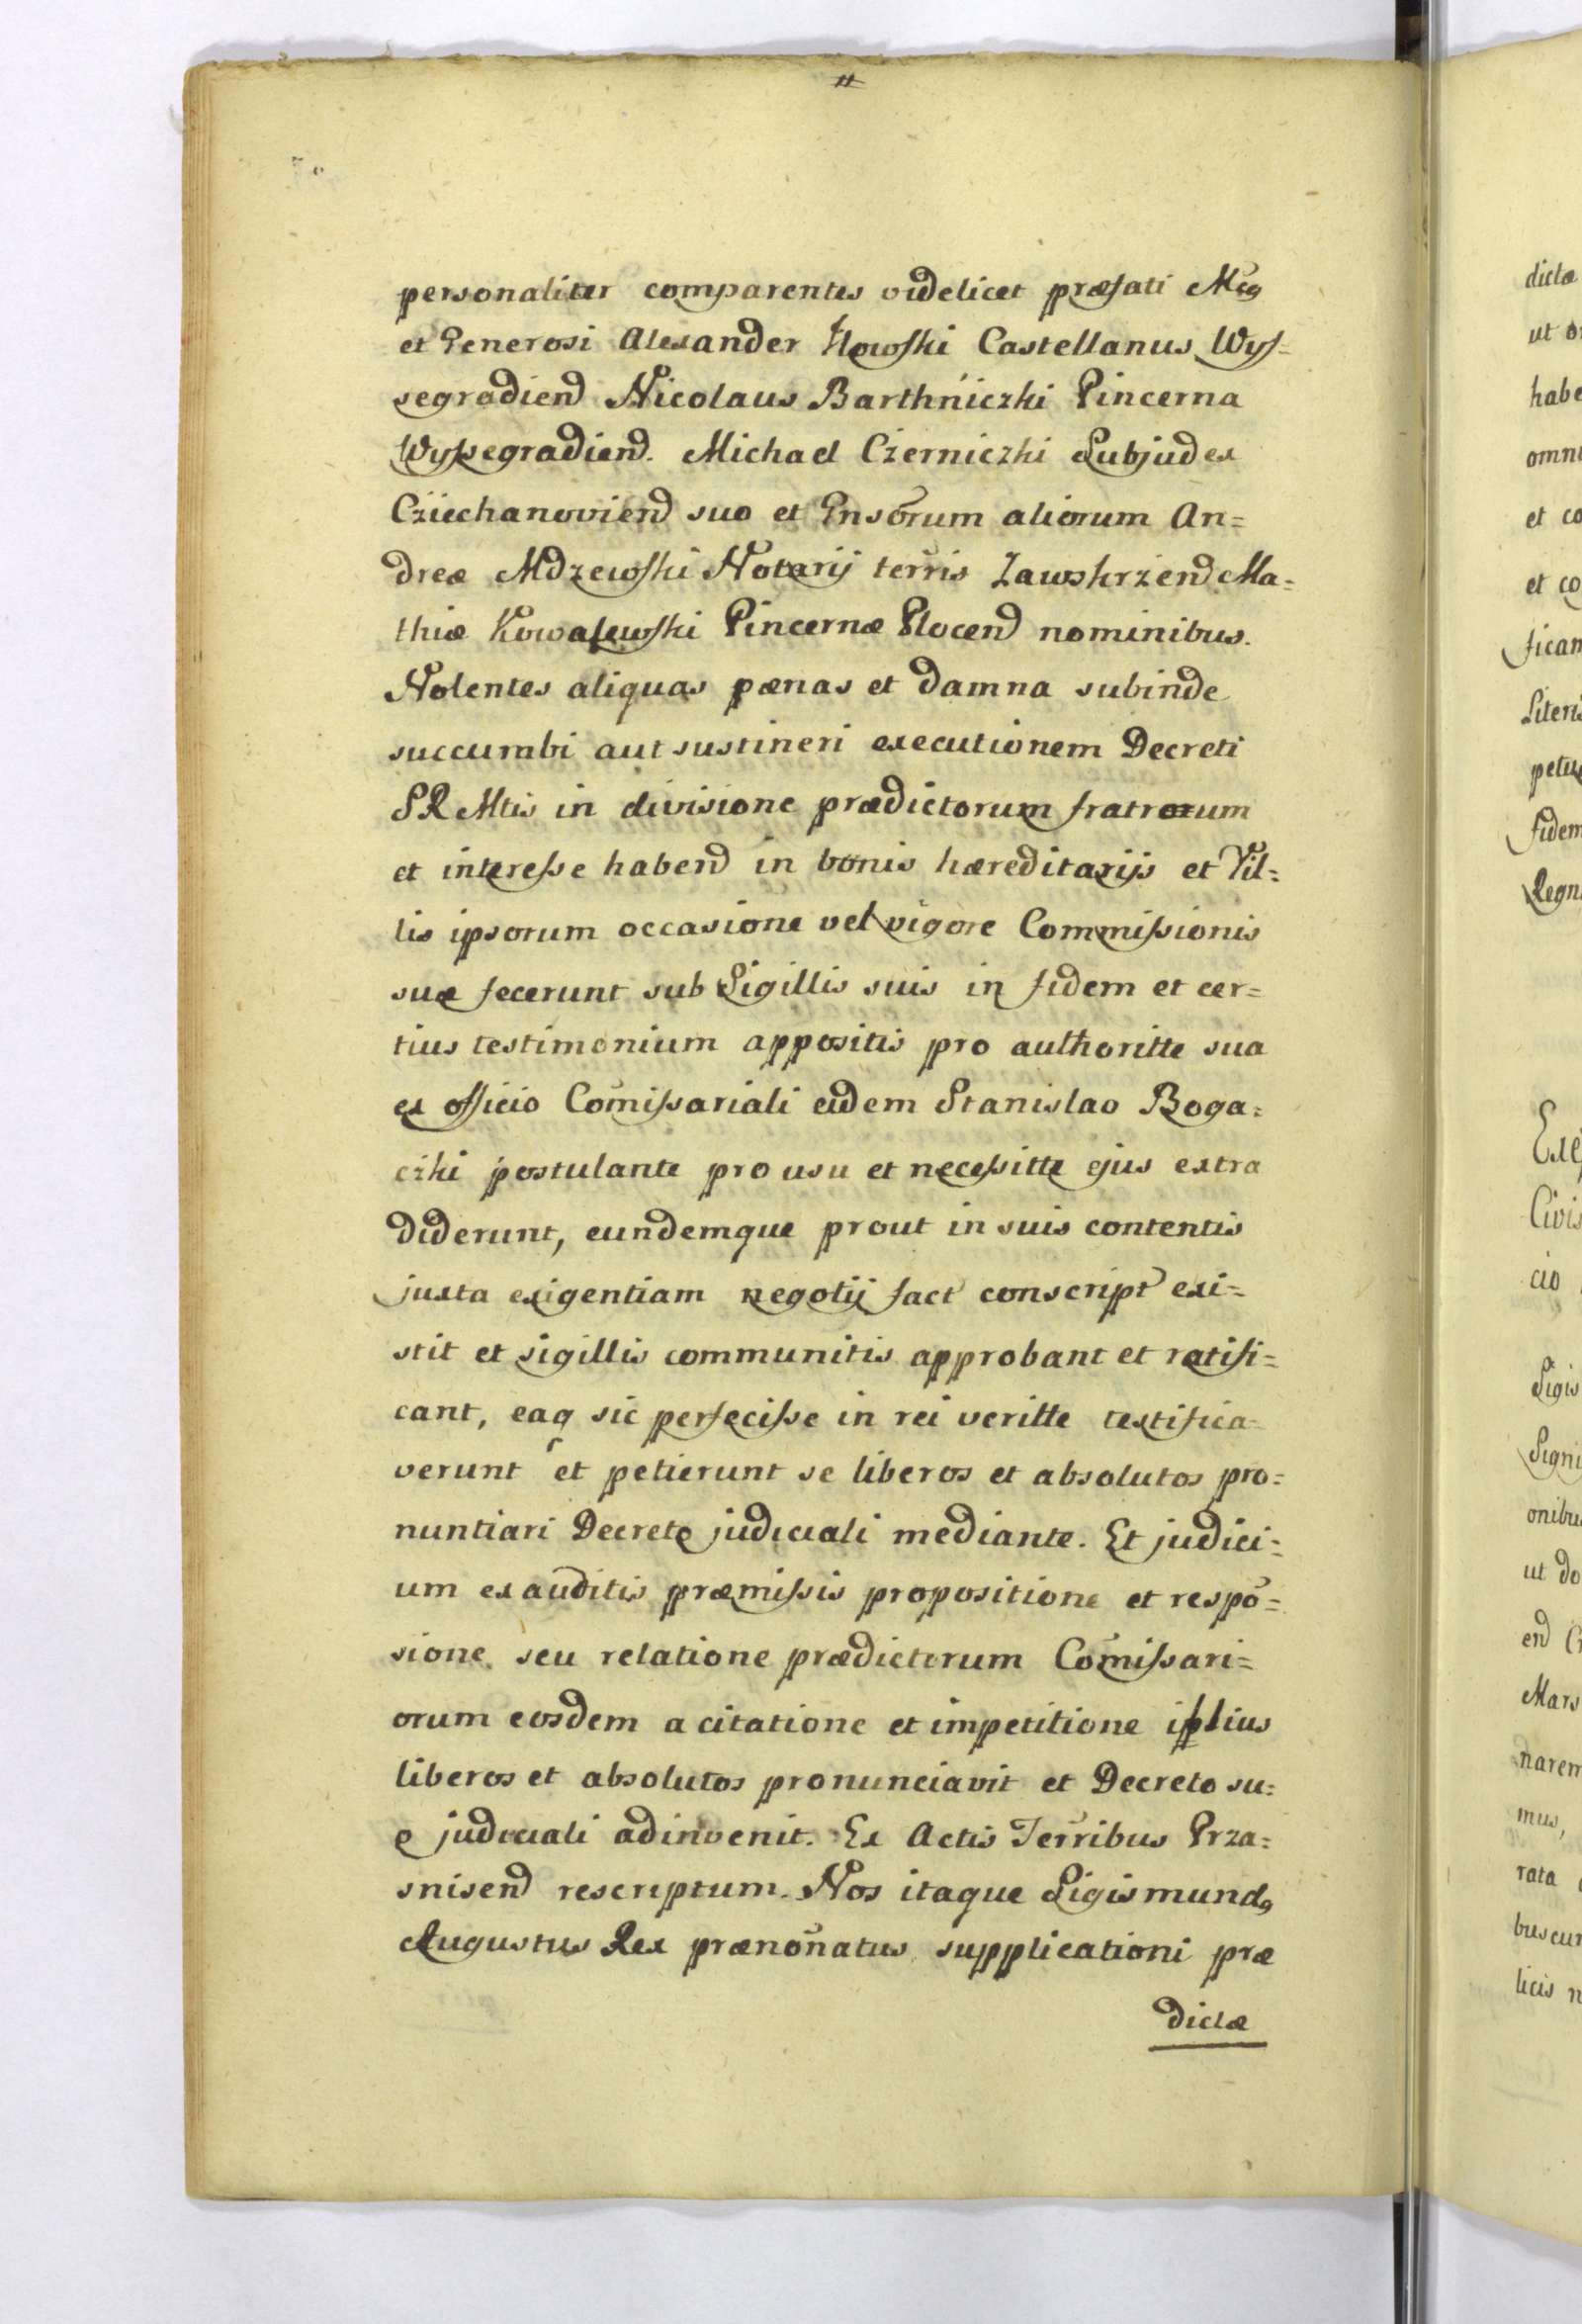 personaliter comparentes videlicet præfati Mcq
et Generosi Alexander Ilowski Castellanus Wys=
segradien Nicolaus Barthniczki Pincerna
Wyssegradien. Michael Czerniczki Subjudex
Cziechanovien suo et Gnsorum aliorum An=
dreæ Mdzewski Notarij terris Zawskrzen Ma=
thiæ Kowalewski Pincernæ Plocen nominibus.
Nolentes aliquas pænas et damna subinde
succumbi aut sustineri executionem Decreti
SRMtis in divisione prædictorum fratrorum
et interesse haben in bonis hæreditarijs et Vil=
lis ipsorum occasione vel vigore Commissionis
suæ fecerunt sub Sigillis suis in fidem et cer=
tius testimonium appositis pro authoritte sua
ex officio Comissariali eidem Stanislao Boga=
czki postulante pro usu et necessitte ejus extra
diderunt, eundemque prout in suis contentis
juxta exigentiam negotij fact conscript exi=
stit et sigillis communitis approbant et ratifi=
cant, eaq sic perfecisse in rei veritte testifica=
verunt et petierunt se liberos et absolutos pro=
nuntiari Decreto judiciali mediante. Et judici=
um exauditis præmissis propositione et respo=
sione seu relatione prædictorum Comissari=
orum eosdem a citatione et impetitione ipsius
liberos et absolutos pronunciavit et Decreto su=
o judiciali adinvenit. Ex Actis Terribus Prza=
snisen rescriptum. Nos itaque Sigismundq
Augustus Rex prænonatus supplicationi præ
dictæ
dictæ
habe
omni
et co
et co
fican
Literis
fidem
Regn
Civis
cio
Sigis
Signi
onibus
ut do
Mars
narem
mus,
rata
buscun
licis n